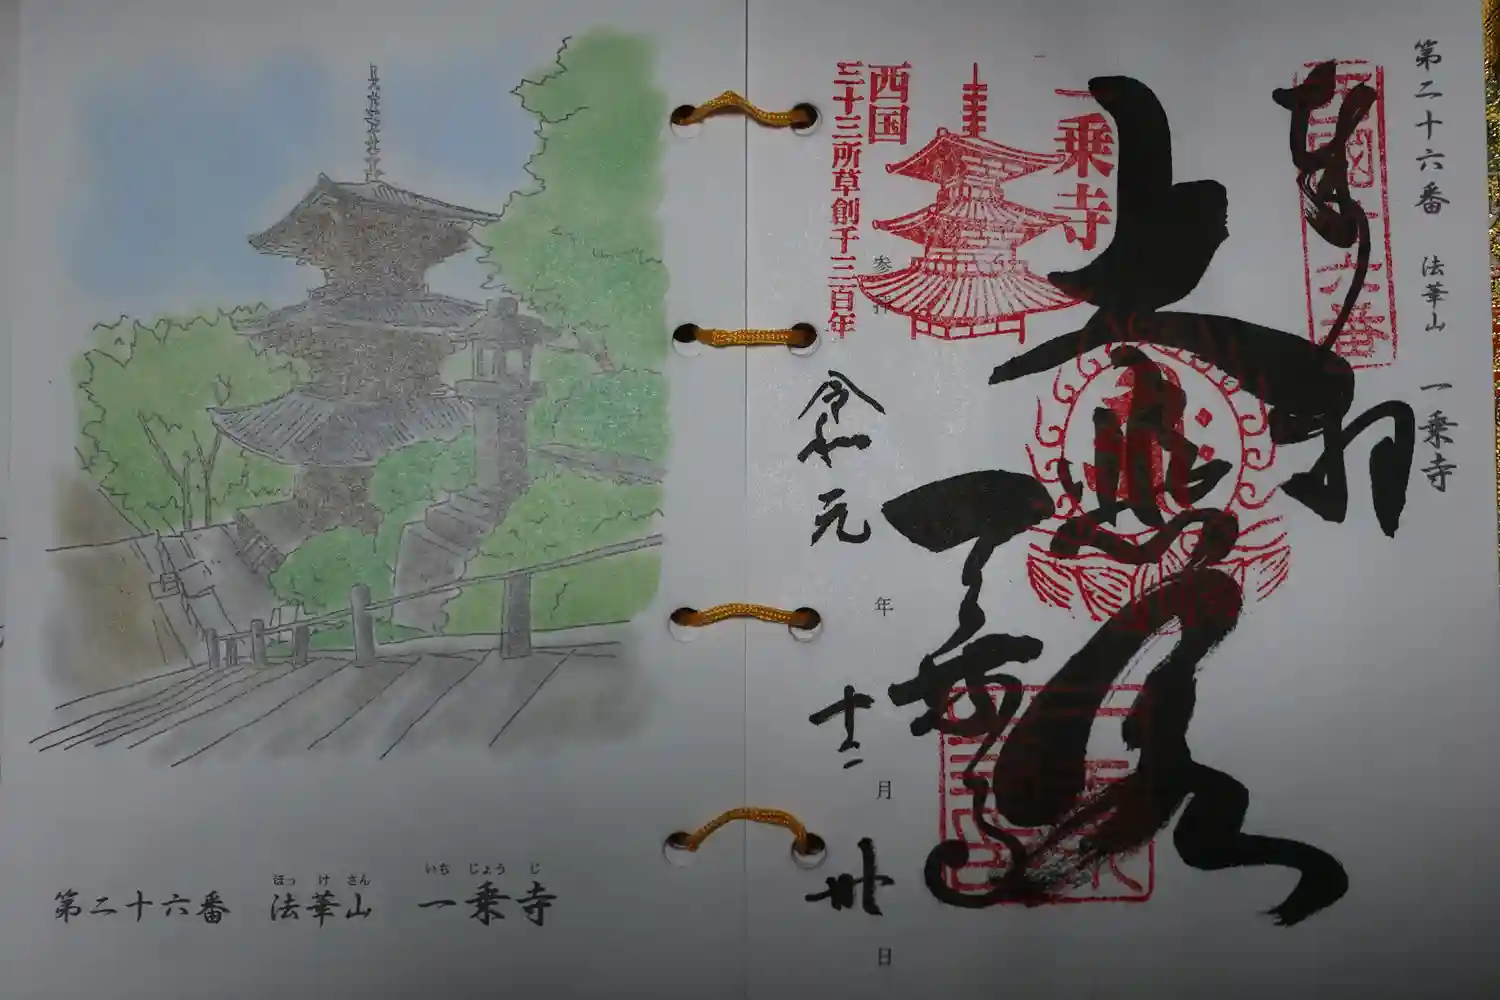 第二十六番 法華山 一乗寺
奉拝
大悲閣
一乗寺
一乗寺
西国
三十三所草創千三百年
参拝
令和元年十二月 日
ほっ け さん いち じょう じ
第二十六番 法華山 一乗寺